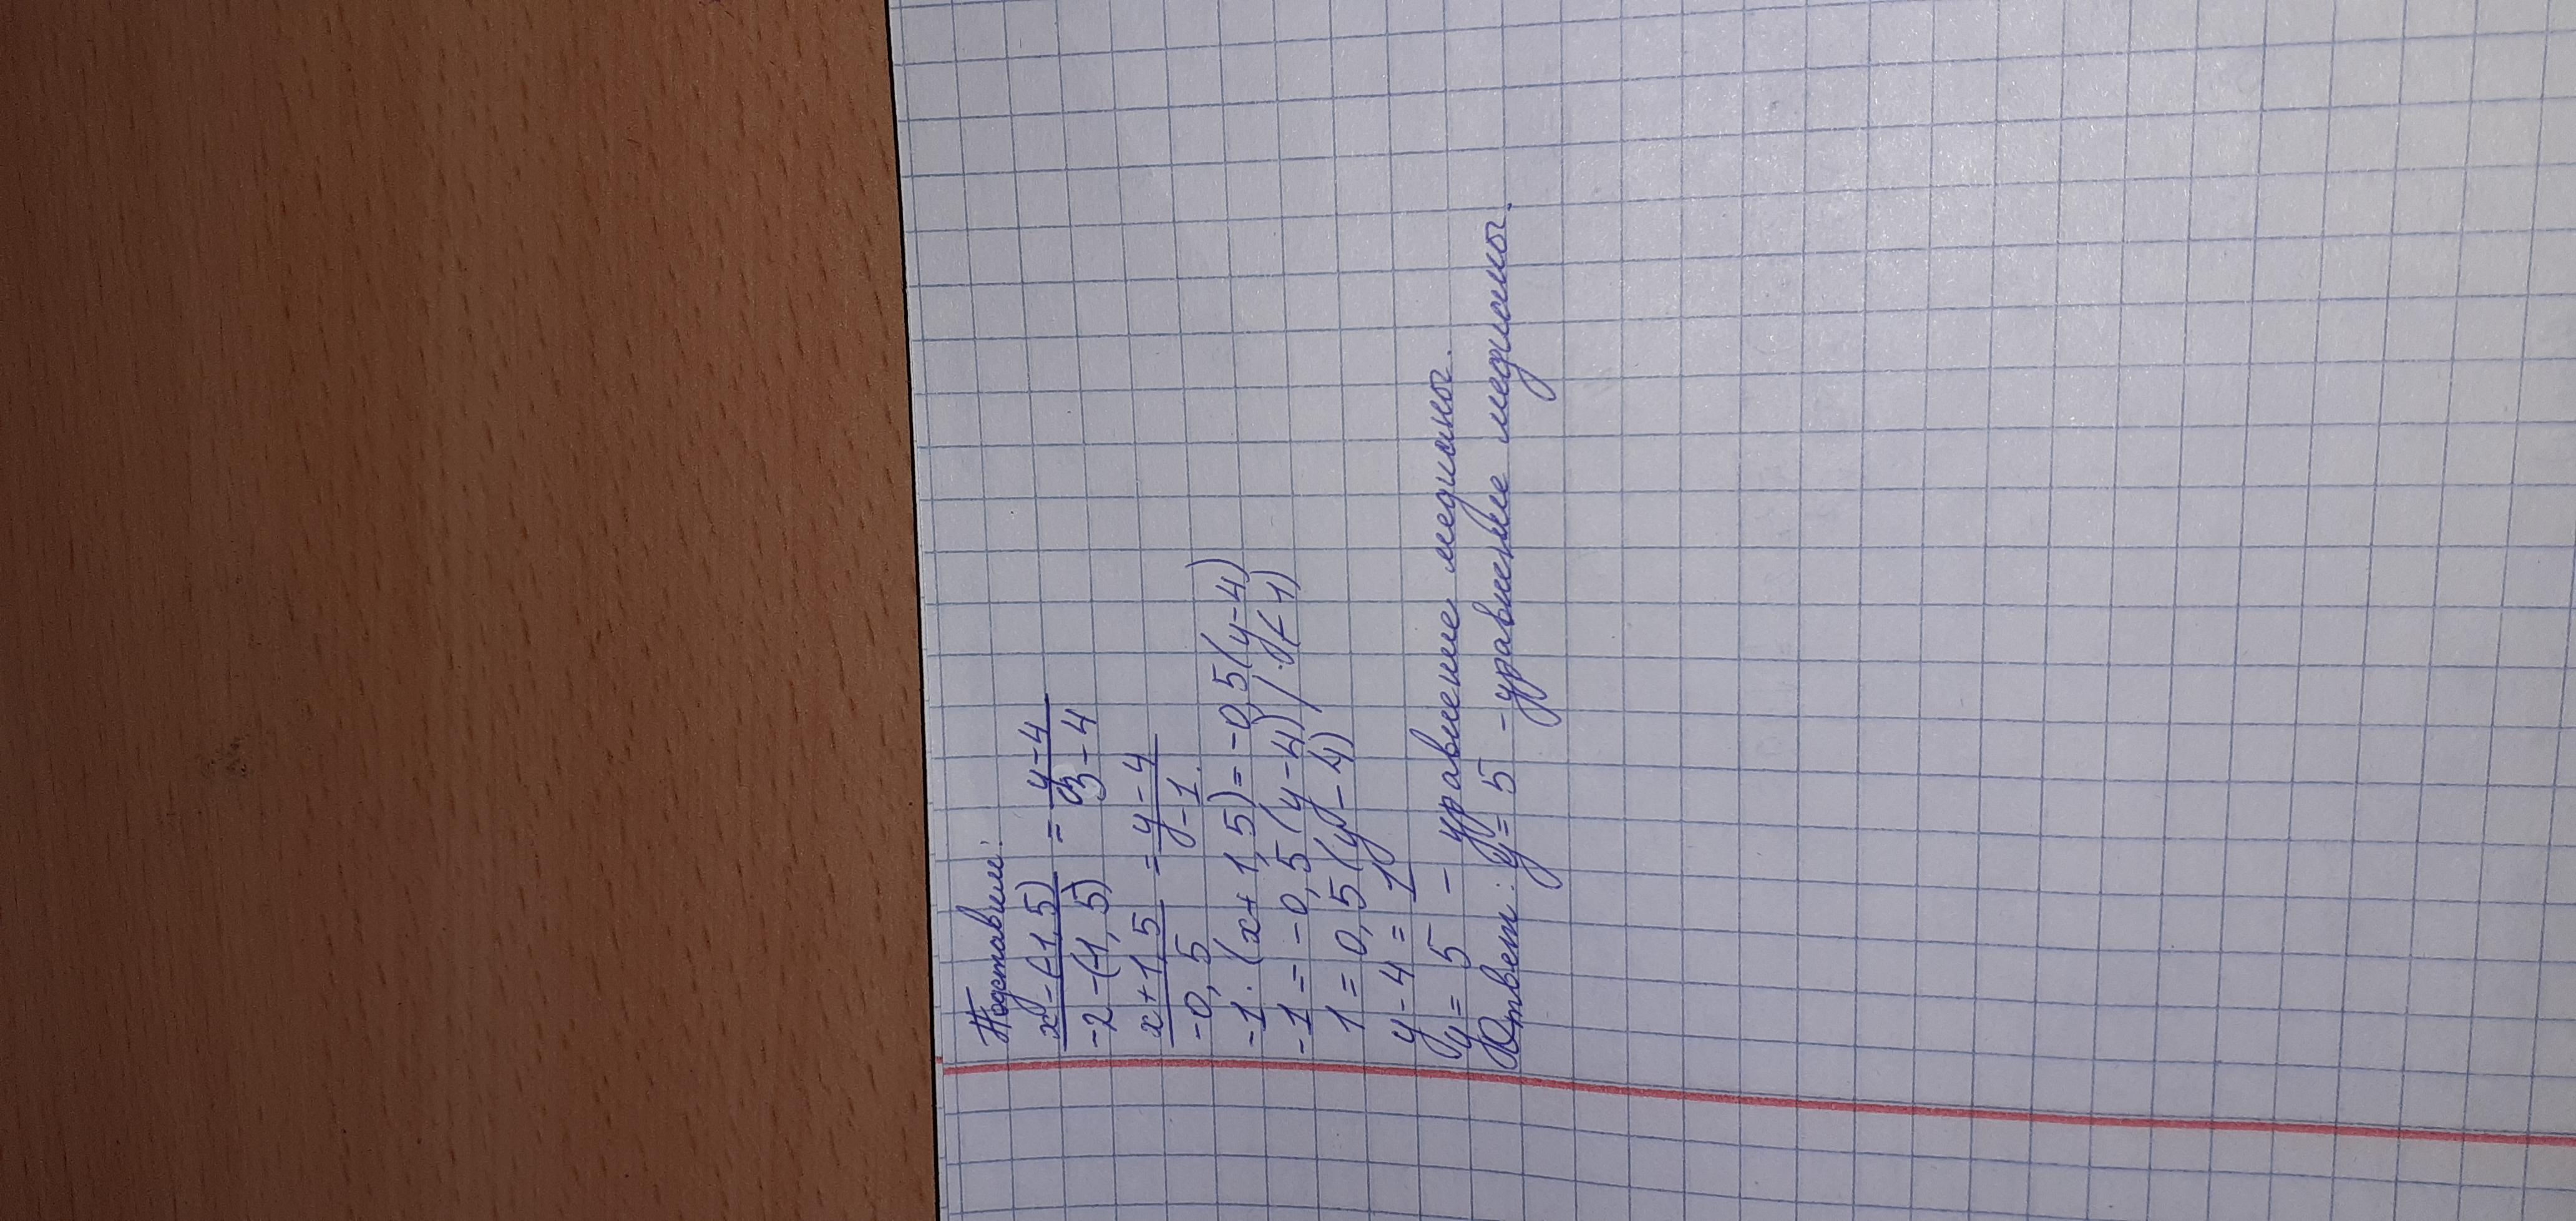 Подставим:
x-(-1,5) / -2-(-1,5) = y-4 / 3-4
x+1,5 / -0,5 = y-4 / -1
-1·(x+1,5)=-0,5(y-4)
-1=-0,5(y-4) / ·(-1)
1=0,5(y-4)
y-4=1
y=5 - уравнение медианы.
Ответ: y=5 - уравнение медианы.